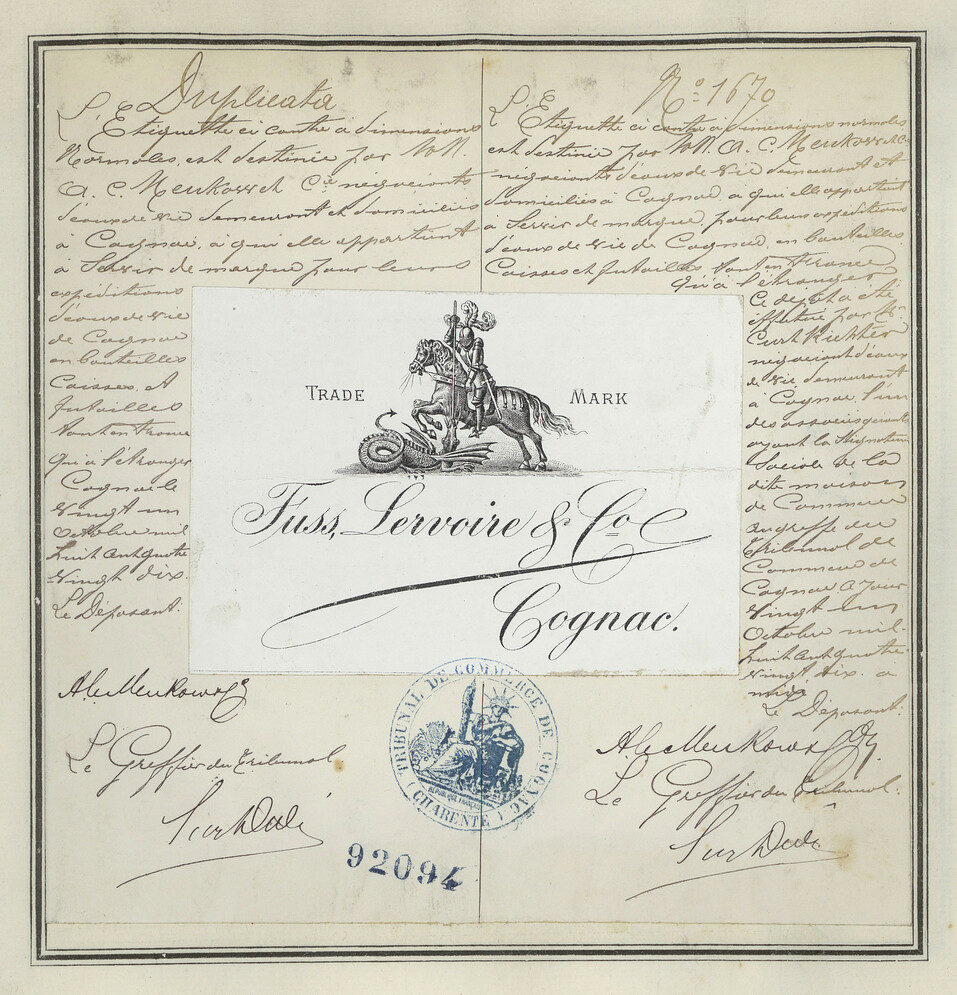 Duplicata
L'Etiquette ci contre à dimensions
Normales, est destinée par MM.
A. C. Meukow et Cie négociants
d'eaux de vie demeurant et domiciliés
à Cognac, à qui elle appartient
à Servir de marque pour leurs
expéditions
d'eaux de vie
de Cognac
en bouteilles
Caisses, et
futailles
tant en France
qu'à l'étranger
Cognac le
Vingt un
Octobre mil
huit cent quatre
Vingt dix.
Le Déposant:
A. C. Meukow & Co
Le Greffier du Tribunal
No. 1670
L'Etiquette ci contre à dimensions normales
est destinée par MM. A. C. Meukow et Cie
négociants d'eaux de vie demeurant et
domiciliés à Cognac à qui elle appartient
à Servir de marque pour leurs expéditions
d'eaux de vie de Cognac, en bouteilles
Caisses et futailles tant en France
qu'à l'étranger
Ce depot a été
effectué par Mr.
Curt Richter
négociant d'eaux
de vie demeurant
à Cognac, l'un
des associés gérants
ayant la Signature
Sociale de la
dite maison
de Commerce
au greffe du
Tribunal de
Commerce de
Cognac. a Jour
Vingt un
Octobre mil-
huit cent quatre
vingt dix. a
midi
Le Déposant:
A. C. Meukow & Co
Le Greffier du Tribunal:
TRADE MARK
Fuss, Lervoire & Co
Cognac.
TRIBUNAL DE COMMERCE DE COGNAC
(CHARENTE)
RÉPUBLIQUE FRANÇAISE
92094